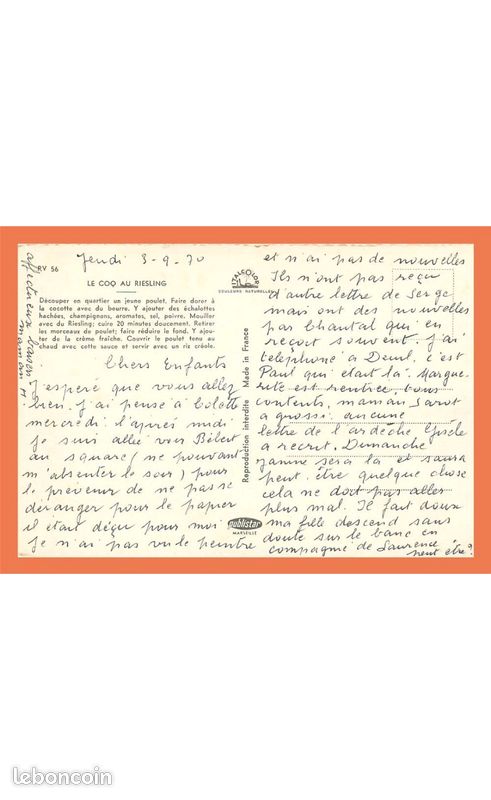 RV 56
LE COQ AU RIESLING
Découper en quartier un jeune poulet. Faire dorer à
la cocotte avec du beurre. Y ajouter des échalottes
hachées, champignons, aromates, sel, poivre. Mouiller
avec du Riesling; cuire 20 minutes doucement. Retirer
les morceaux de poulet; faire réduire le fond. Y ajou-
ter de la crème fraîche. Couvrir le poulet tenu au
chaud avec cette sauce et servir avec un riz créole.
Jeudi 3-9-70
Chers Enfants
J'espère que vous allez
bien. J'ai pensé à Colette
mercredi l'après midi
je suis allée voir Bébert
au square (ne pouvant
m'absenter le soir) pour
le prévenir de ne pas se
déranger pour le papier
il était déçu pour moi
je n'ai pas vu le peintre
et n'ai pas de nouvelles
Ils n'ont pas reçu
d'autre lettre de Serge
mais ont des nouvelles
par Chantal qui en
reçoit souvent. J'ai
téléphoné à Deuil, c'est
Paul qui était là. Margue-
rite est rentrée tous
contents, maman
a grossi aucune
lettre de l'ardèche Gisèle
a récrit. Dimanche
sera là et saura
peut être quelque chose
cela ne doit pas aller
plus mal. Il fait doux
ma fille descend sans
doute sur le banc en
compagnie de Laurence
peut être?
affectueux
maman M.
ITALCOLOR
COULEURS NATURELLES
Reproduction interdite Made in France
publistar
MARSEILLE
leboncoin